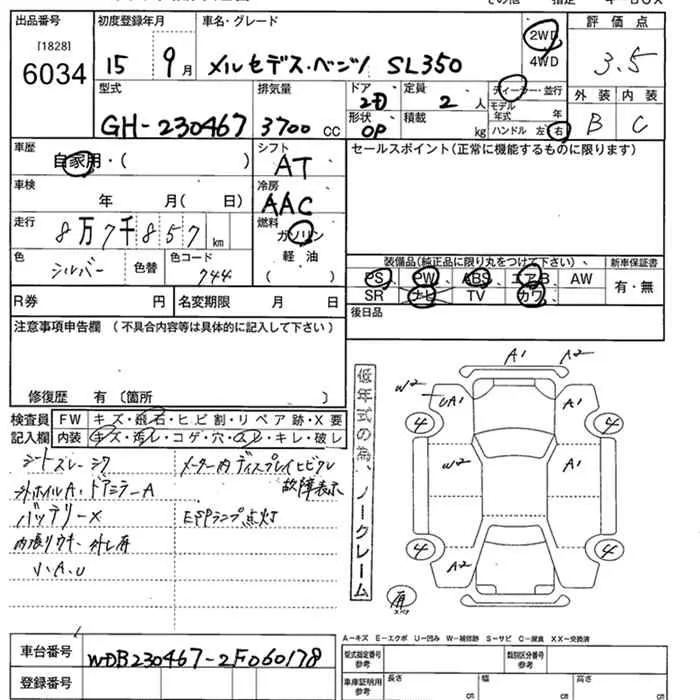 その他 指定 4-BOX
出品番号 初度登録年月 車名・グレード 評価点
[1828]
6034
15 9月 メルセデス・ベンツ SL350
2WD
4WD
3.5
型式 排気量 ドア 定員 ディーラー・並行
GH-230467 3700 cc 2D 2 人
形状 積載 モデル年式 年
OP kg ハンドル 左 右
外装 内装
B C
車歴 シフト セールスポイント(正常に機能するものに限ります)
自家用・( ) AT
車検 冷房
年 月( 日) AAC
走行 燃料
8万7千857km ガソリン
色 色替 色コード 軽油
シルバー 744 ( )
装備品(純正品に限り丸をつけて下さい) 新車保証書
PS PW ABS エアB AW 有・無
SR ナビ TV カワ
R券 円 名変期限 月 日
後日品
注意事項申告欄 (不具合内容等は具体的に記入して下さい)
修復歴 有 (箇所 )
検査員 FW キズ・飛石・ヒビ割・リペア跡・X要
記入欄 内装 キズ・汚レ・コゲ・穴・スレ・キレ・破レ
シートスレ・シワ メーター内ディスプレイヒビワレ
外ホイルA・ドアミラーA 故障表示
バッテリーX ESPランプ点灯
内張りウキ
小A、U
低年式の為、ノークレーム
A1 A2
W2 UA1 A1
4 4
W2 A1
4 4
A2
A-キズ E-エクボ U-凹み W-補修跡 S-サビ C-腐食 XX-交換済
車台番号 WDB230467-2F060178
型式指定番号 参考 類別区分番号 参考
登録番号 車庫証明用 参考 長さ 幅 高さ
cm cm cm